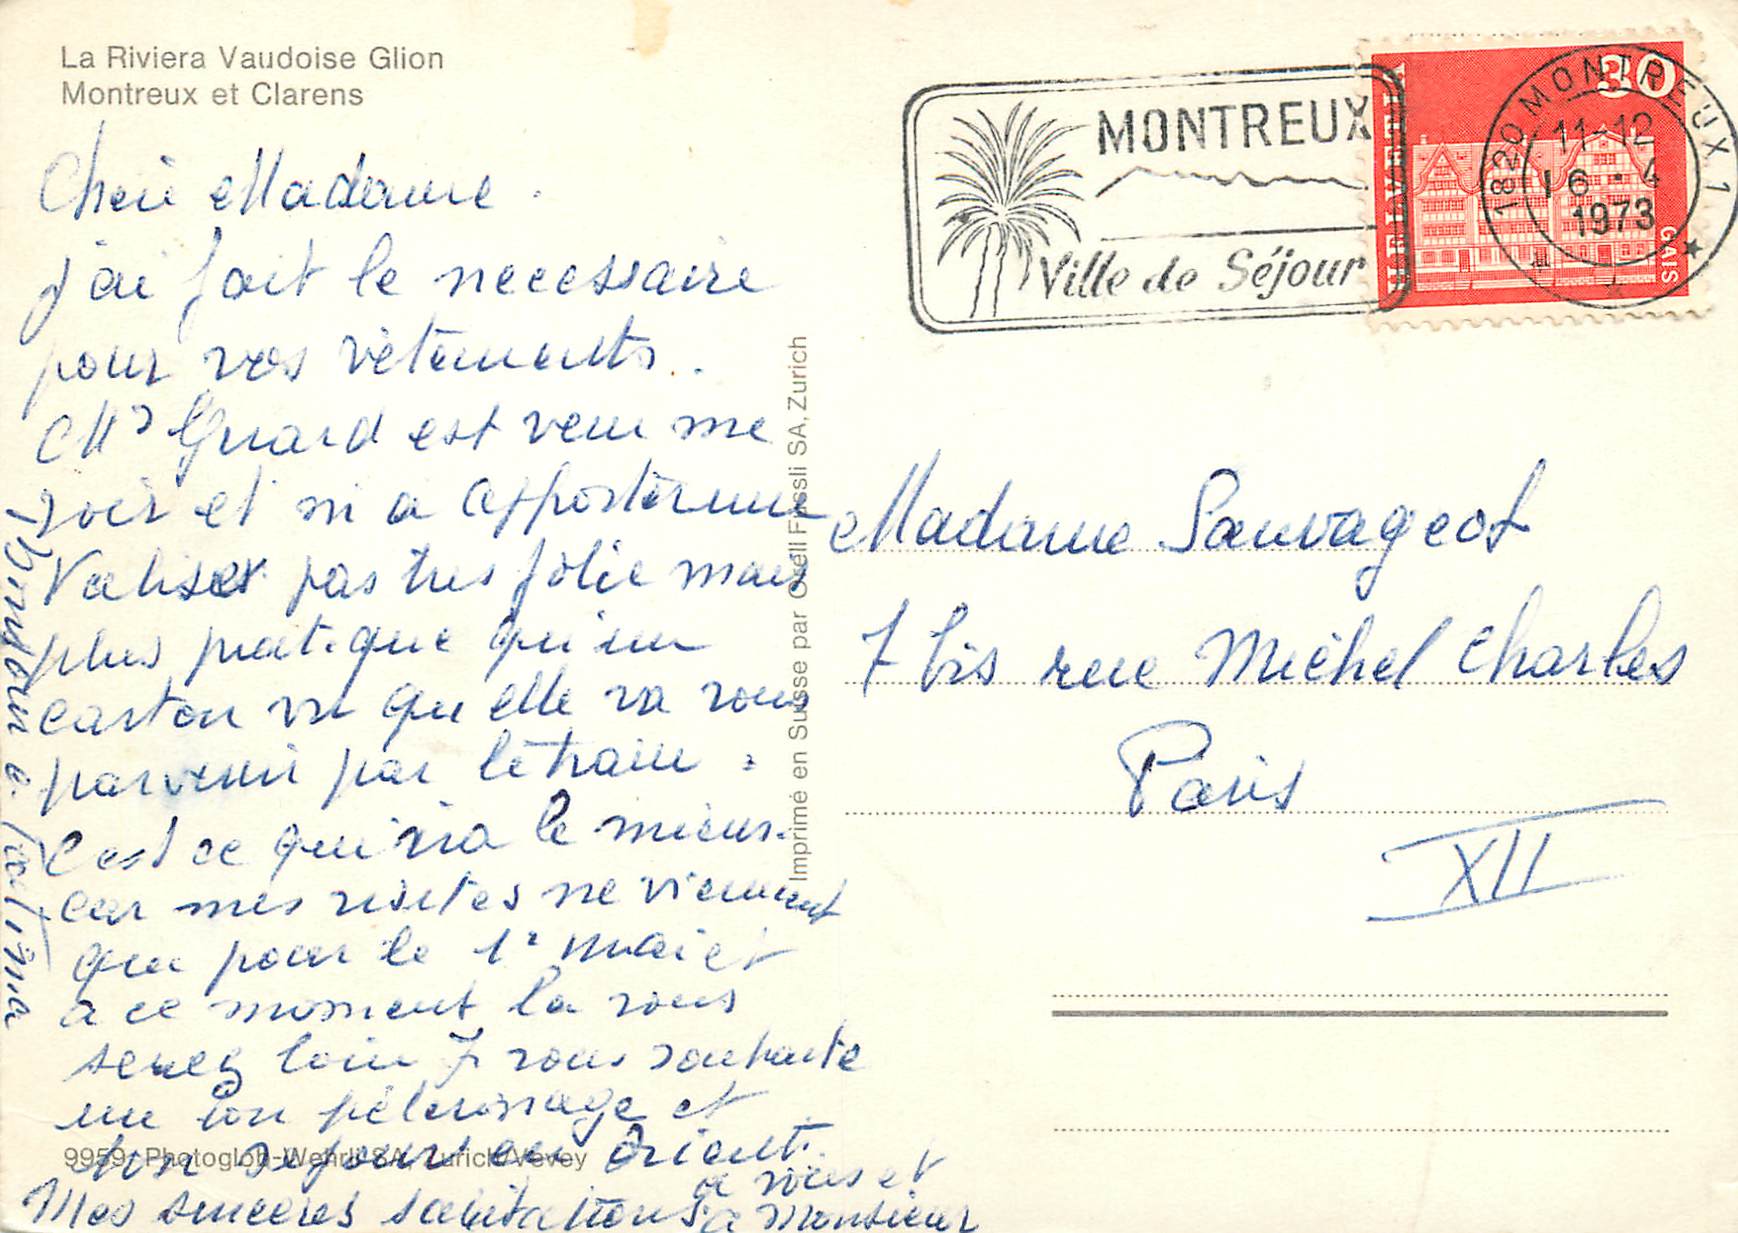 La Riviera Vaudoise Glion
Montreux et Clarens
Cheie Madame.
j'ai fait le necessaire
pour vos vêtements.
est venu me
voir et m'a apporter une
Valises pas tres jolie mais
plus pratique qu'un
carton vu que elle va vous
parvenir par le train.
C'est ce qui ira le mieux.
car mes visites ne viennent
que pour le 1r mai et
a ce moment la vous
serez loin J vous souhaite
un bon pélerinage et
bon sejour en Orient.
Mes sinceres salutations a vous et
a Monsieur
Bonjour a Fatima
9959 Photoglob-Wehrli SA, Zurich/Vevey
Imprimé en Suisse par Orell Füssli SA, Zurich
MONTREUX
Ville de Séjour
HELVETIA
30
GAIS
1820 MONTREUX 1
11-12
16.-4
1973
Madame Sauvageot
7 bis rue Michel Charles
Paris
XII